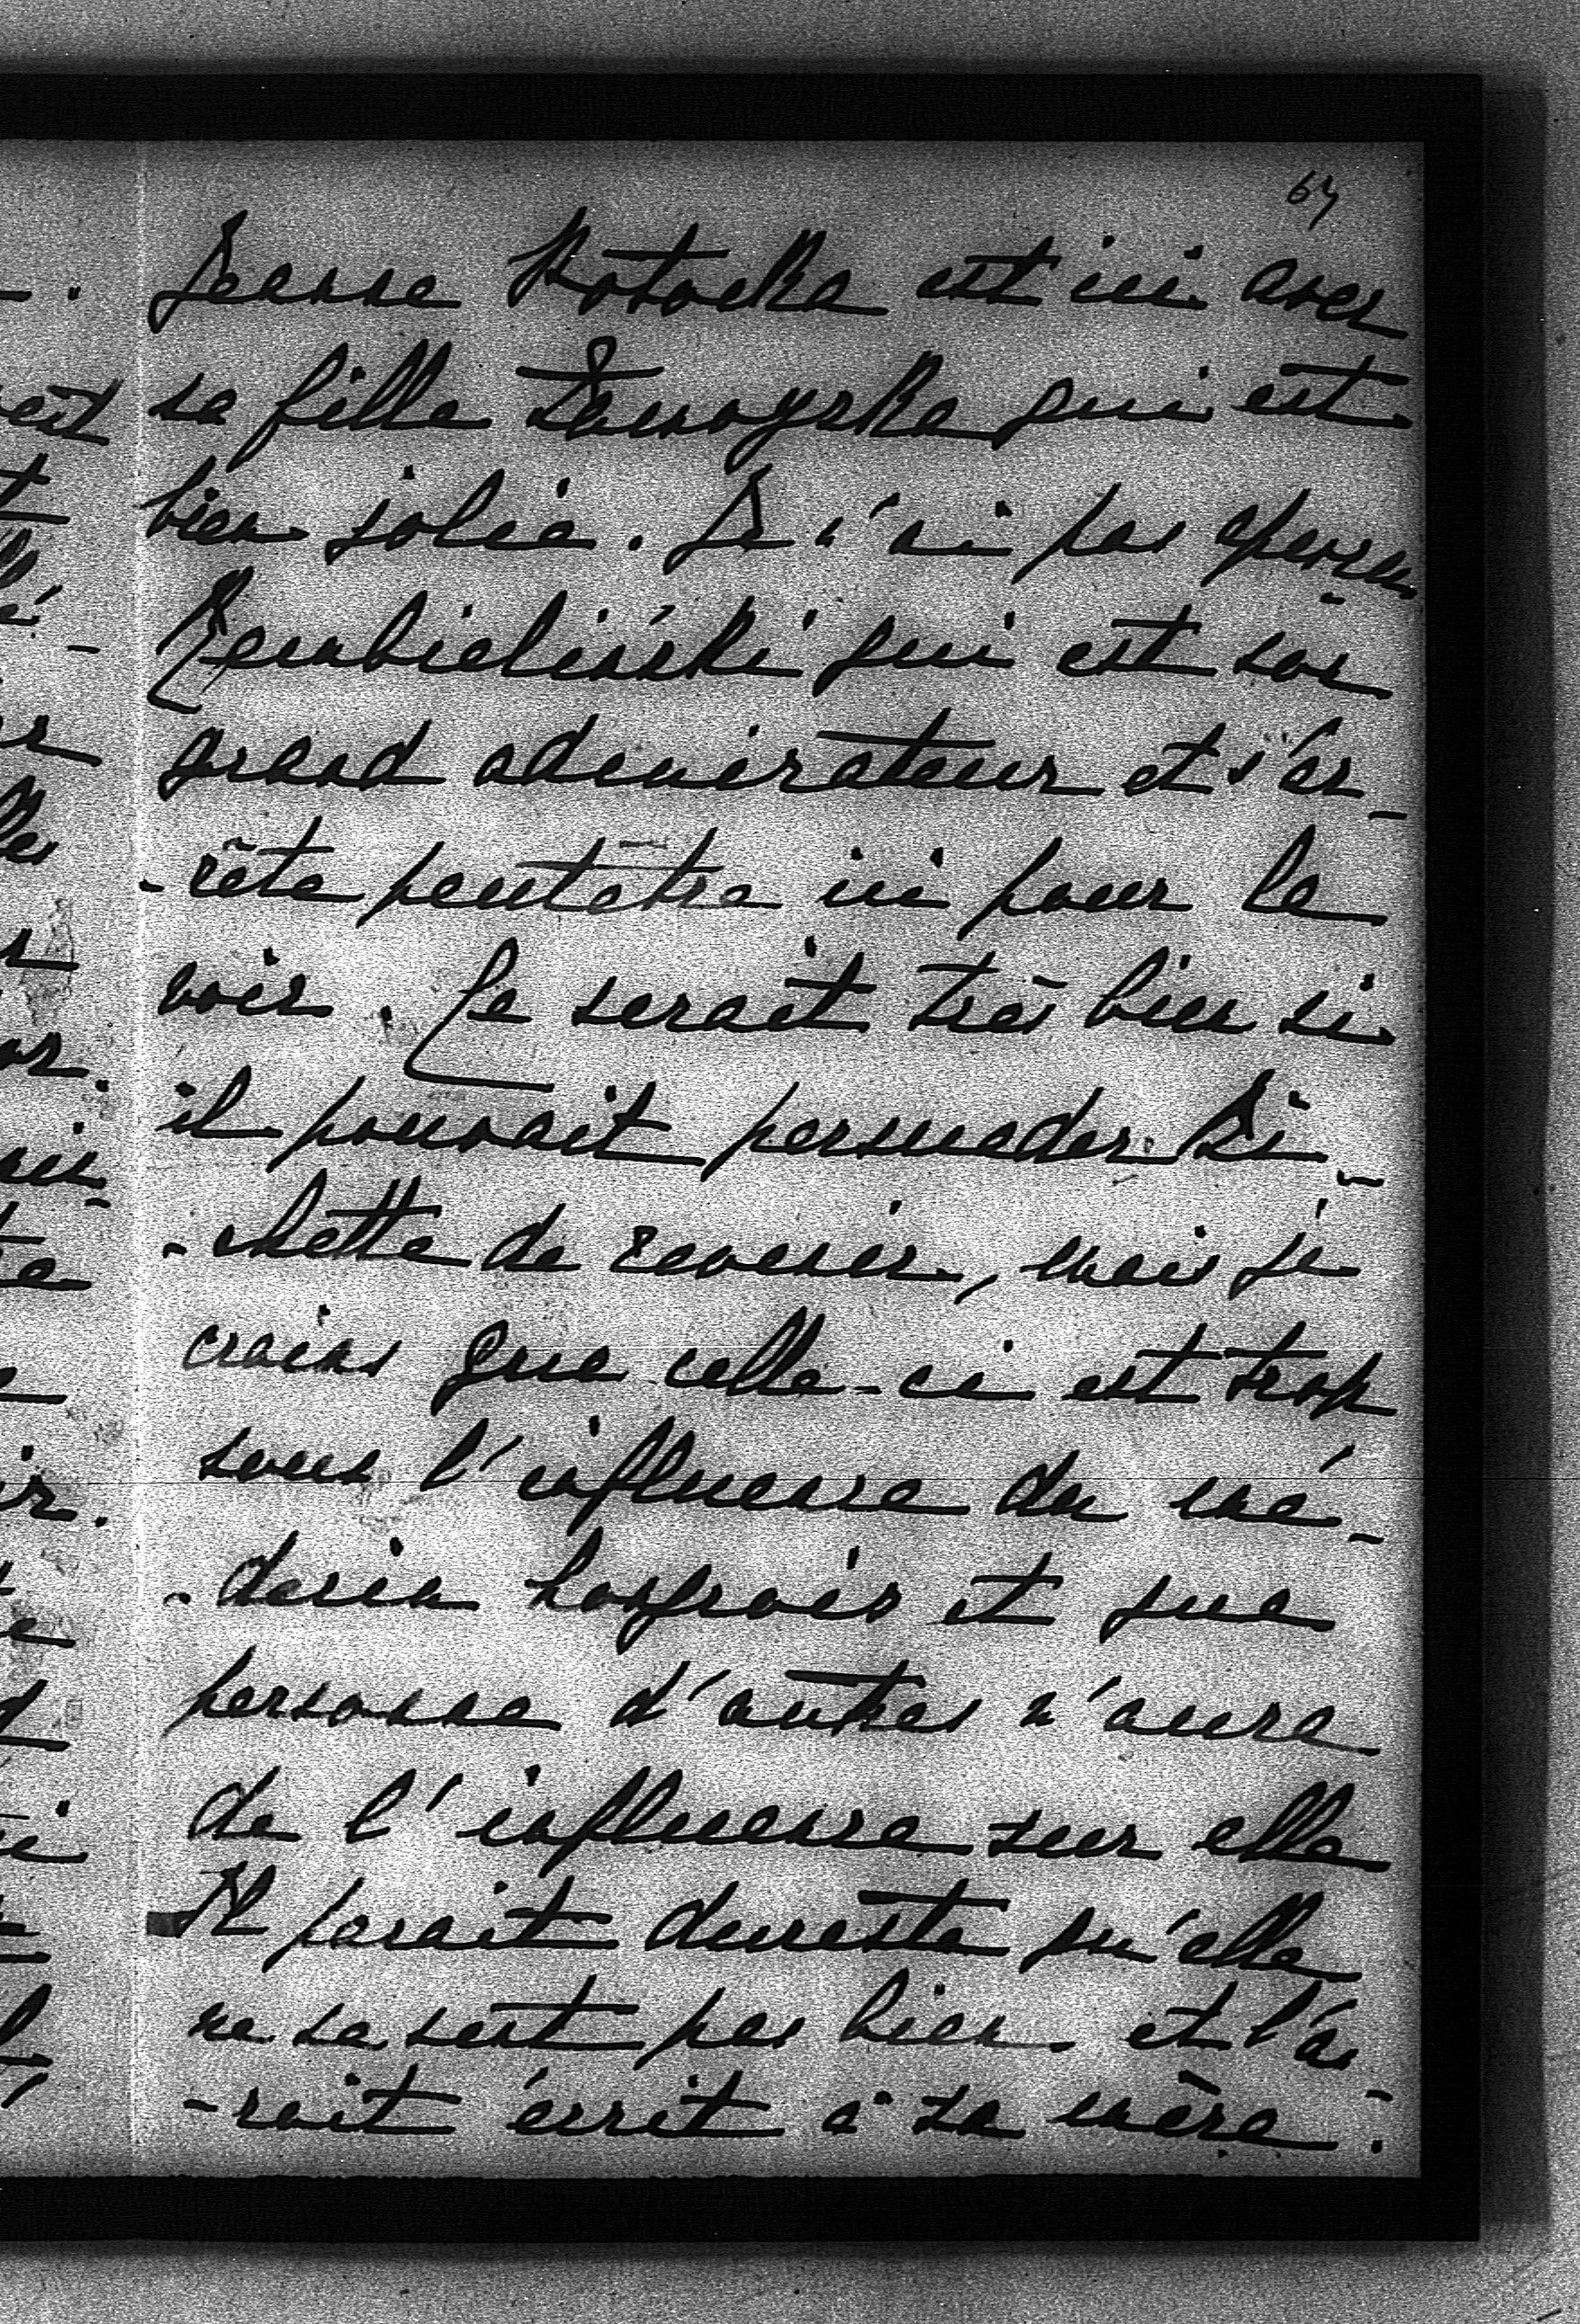 Jeanne Potocka est ici avec
sa fille Zamoyska qui est
bien jolie. Je n'ai pas aperçu
Rembieliński qui est son
grand admirateur et s'ar-
-rête peutetre ici pour la
voir. Ce serait très bien si
il pouvait persuader Bi-
-chette de revenir, mais je
crains que celle-ci est trop
sous l'influence du mé-
-decin hongrois et que
personne d'autres n'aura
de l'influence sur elle
Il parait dureste qu'elle
ne se sent pas bien et l'au-
-rait écrit à sa mère.